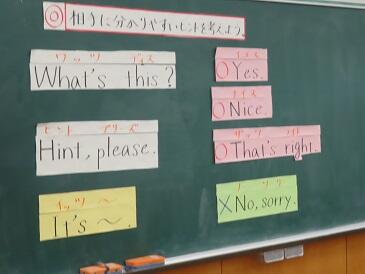 ◎ 相手に分かりやすいヒントを考えよう。
ワッツ ディス
What's this?
ヒント プリーズ
Hint, please.
イッツ ～
It's ～.
イェス
○Yes.
ナイス
○Nice.
ザッツ ライト
○That's right.
ノー ソーリー
×No, sorry.